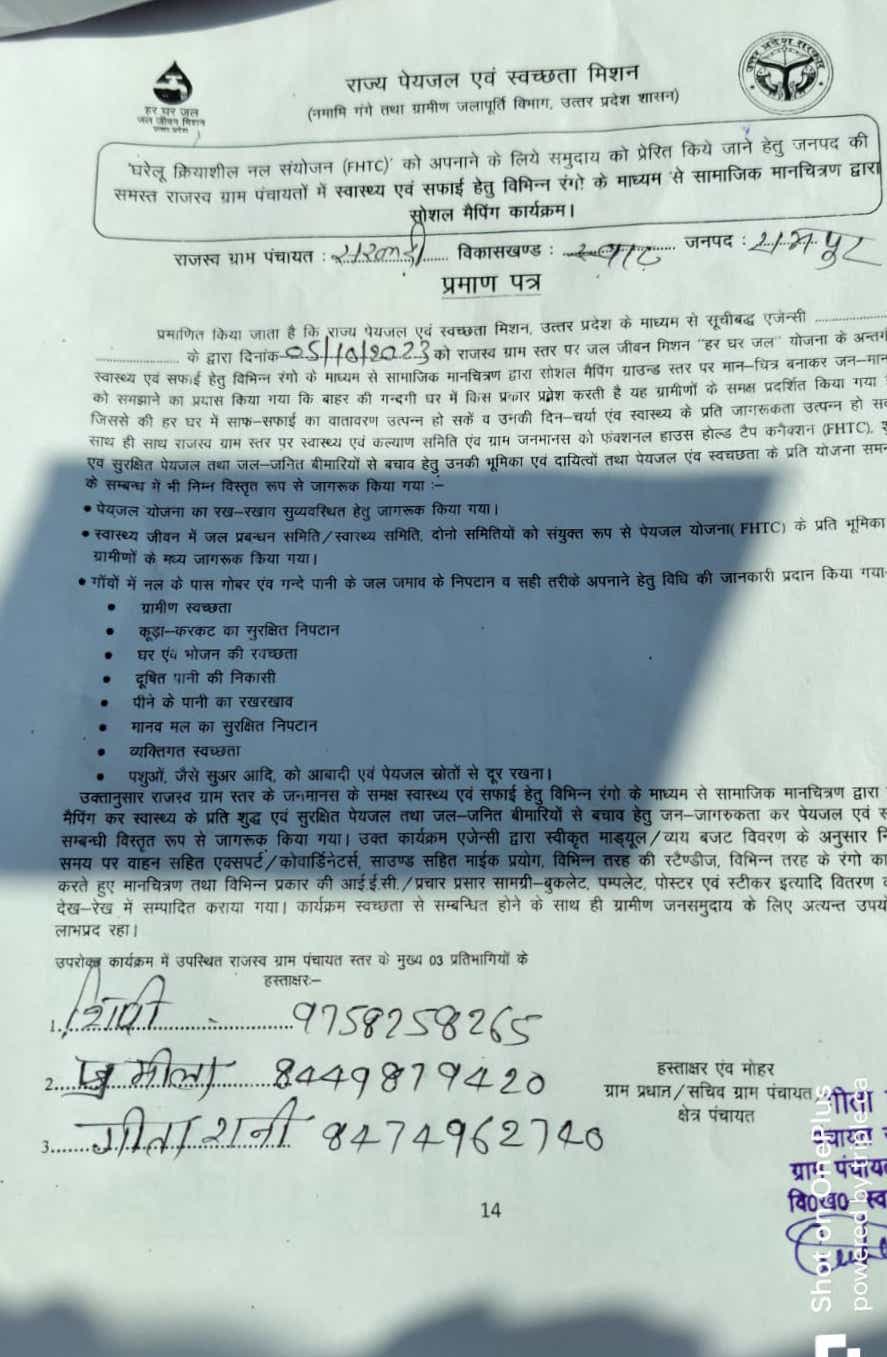 हर घर जल
जल जीवन मिशन
उत्तर प्रदेश
उत्तर प्रदेश सरकार
राज्य पेयजल एवं स्वच्छता मिशन
(नमामि गंगे तथा ग्रामीण जलापूर्ति विभाग, उत्तर प्रदेश शासन)
'घरेलू क्रियाशील नल संयोजन (FHTC)' को अपनाने के लिये समुदाय को प्रेरित किये जाने हेतु जनपद की
समस्त राजस्व ग्राम पंचायतों में स्वास्थ्य एवं सफाई हेतु विभिन्न रंगो के माध्यम से सामाजिक मानचित्रण द्वारा
सोशल मैपिंग कार्यक्रम।
राजस्व ग्राम पंचायत : ............ विकासखण्ड : स्वार ............ जनपद : रामपुर
प्रमाण पत्र
प्रमाणित किया जाता है कि राज्य पेयजल एवं स्वच्छता मिशन, उत्तर प्रदेश के माध्यम से सूचीबद्ध एजेन्सी ................
.................. के द्वारा दिनांक 05/10/2023 को राजस्व ग्राम स्तर पर जल जीवन मिशन "हर घर जल" योजना के अन्तर्ग
स्वास्थ्य एवं सफाई हेतु विभिन्न रंगो के माध्यम से सामाजिक मानचित्रण द्वारा सोशल मैपिंग ग्राउन्ड स्तर पर मान–चित्र बनाकर जन–मान
को समझाने का प्रयास किया गया कि बाहर की गन्दगी घर में किस प्रकार प्रवेश करती है यह ग्रामीणों के समक्ष प्रदर्शित किया गया
जिससे की हर घर में साफ–सफाई का वातावरण उत्पन्न हो सकें व उनकी दिन–चर्या एंव स्वास्थ्य के प्रति जागरूकता उत्पन्न हो सक
साथ ही साथ राजस्व ग्राम स्तर पर स्वास्थ्य एवं कल्याण समिति एंव ग्राम जनमानस को फंक्शनल हाउस होल्ड टैप कनैक्शन (FHTC), शु
एवं सुरक्षित पेयजल तथा जल–जनित बीमारियों से बचाव हेतु उनकी भूमिका एवं दायित्वों तथा पेयजल एंव स्वचछता के प्रति योजना समन
के सम्बन्ध में भी निम्न विस्तृत रूप से जागरूक किया गया :–
• पेयजल योजना का रख–रखाव सुव्यवस्थित हेतु जागरूक किया गया।
• स्वास्थ्य जीवन में जल प्रबन्धन समिति/स्वास्थ्य समिति, दोनो समितियों को संयुक्त रूप से पेयजल योजना( FHTC) के प्रति भूमिका
ग्रामीणों के मध्य जागरूक किया गया।
• गाँवों में नल के पास गोबर एंव गन्दे पानी के जल जमाव के निपटान व सही तरीके अपनाने हेतु विधि की जानकारी प्रदान किया गया–
• ग्रामीण स्वच्छता
• कूड़ा–करकट का सुरक्षित निपटान
• घर एंव भोजन की स्वच्छता
• दूषित पानी की निकासी
• पीने के पानी का रखरखाव
• मानव मल का सुरक्षित निपटान
• व्यक्तिगत स्वच्छता
• पशुओं, जैसे सुअर आदि, को आबादी एवं पेयजल स्रोतों से दूर रखना।
उक्तानुसार राजस्व ग्राम स्तर के जनमानस के समक्ष स्वास्थ्य एवं सफाई हेतु विभिन्न रंगो के माध्यम से सामाजिक मानचित्रण द्वारा
मैपिंग कर स्वास्थ्य के प्रति शुद्ध एवं सुरक्षित पेयजल तथा जल–जनित बीमारियों से बचाव हेतु जन–जागरुकता कर पेयजल एवं स
सम्बन्धी विस्तृत रूप से जागरूक किया गया। उक्त कार्यक्रम एजेन्सी द्वारा स्वीकृत माड्यूल/व्यय बजट विवरण के अनुसार नि
समय पर वाहन सहित एक्सपर्ट/कोवार्डिनेटर्स, साउण्ड सहित माईक प्रयोग, विभिन्न तरह की स्टैण्डीज, विभिन्न तरह के रंगो का
करते हुए मानचित्रण तथा विभिन्न प्रकार की आई.ई.सी./प्रचार प्रसार सामग्री–बुकलेट, पम्पलेट, पोस्टर एवं स्टीकर इत्यादि वितरण क
देख–रेख में सम्पादित कराया गया। कार्यक्रम स्वच्छता से सम्बन्धित होने के साथ ही ग्रामीण जनसमुदाय के लिए अत्यन्त उपयो
लाभप्रद रहा।
उपरोक्त कार्यक्रम में उपस्थित राजस्व ग्राम पंचायत स्तर के मुख्य 03 प्रतिभागियों के
हस्ताक्षर:–
1. ............ 9758258265
2. ............ 8449879420
3. गीता रानी 8474962740
हस्ताक्षर एंव मोहर
ग्राम प्रधान/सचिव ग्राम पंचायत/
क्षेत्र पंचायत
गीता
ग्राम पंचाय
वि0ख0 स्व
14
Shot on OnePlus
powered by